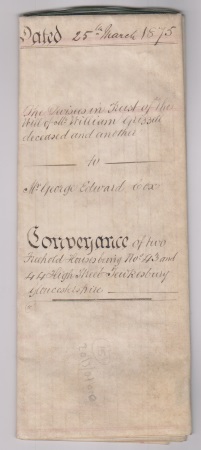 Dated 25th March 1875
The Devisees in Trust of the
Will of Mr William
deceased and another
to
Mr George Edward Cox
Conveyance of two
Freehold Houses being Nos 43 and
44 High Street Tewkesbury
Gloucestershire